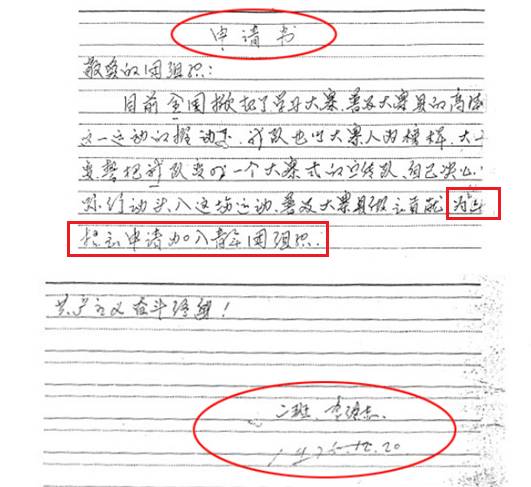 申请书
敬爱的团组织:
目前全国掀起了学习大寨、普及大寨县的高潮
这一运动的推动下, 我队也以大寨人为榜样, 大
变誓把我队变成一个大寨式的 队, 自己决心
行动投入这场运动、普及大寨县做立首 为
提出申请加入青年团组织.
共产主义奋斗终身!
二班
1975.12.20